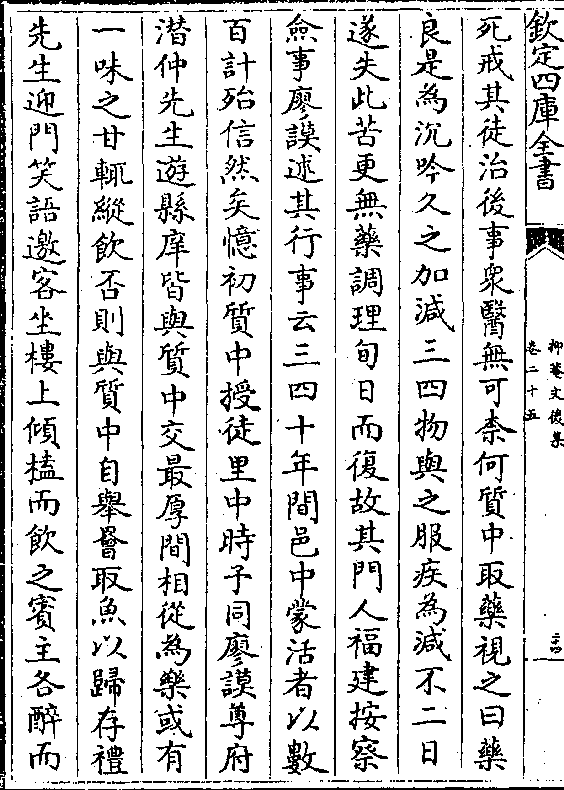 欽定四庫全書
抑菴文後集
卷二十五
二十四
死戒其徒治後事衆醫無可柰何質中取藥視之曰藥
良是為沉吟久之加減三四物與之服疾為減不二日
遂失此苦更無藥調理旬日而復故其門人福建按察
僉事廖謨述其行事云三四十年間邑中蒙活者以數
百計殆信然矣憶初質中授徒里中時子同廖謨尊府
潛仲先生遊縣庠皆與質中交最厚間相從為樂或有
一味之甘輒縱飲否則與質中自舉罾取魚以歸存禮
先生迎門笑語邀客坐樓上傾榼而飲之賓主各醉而